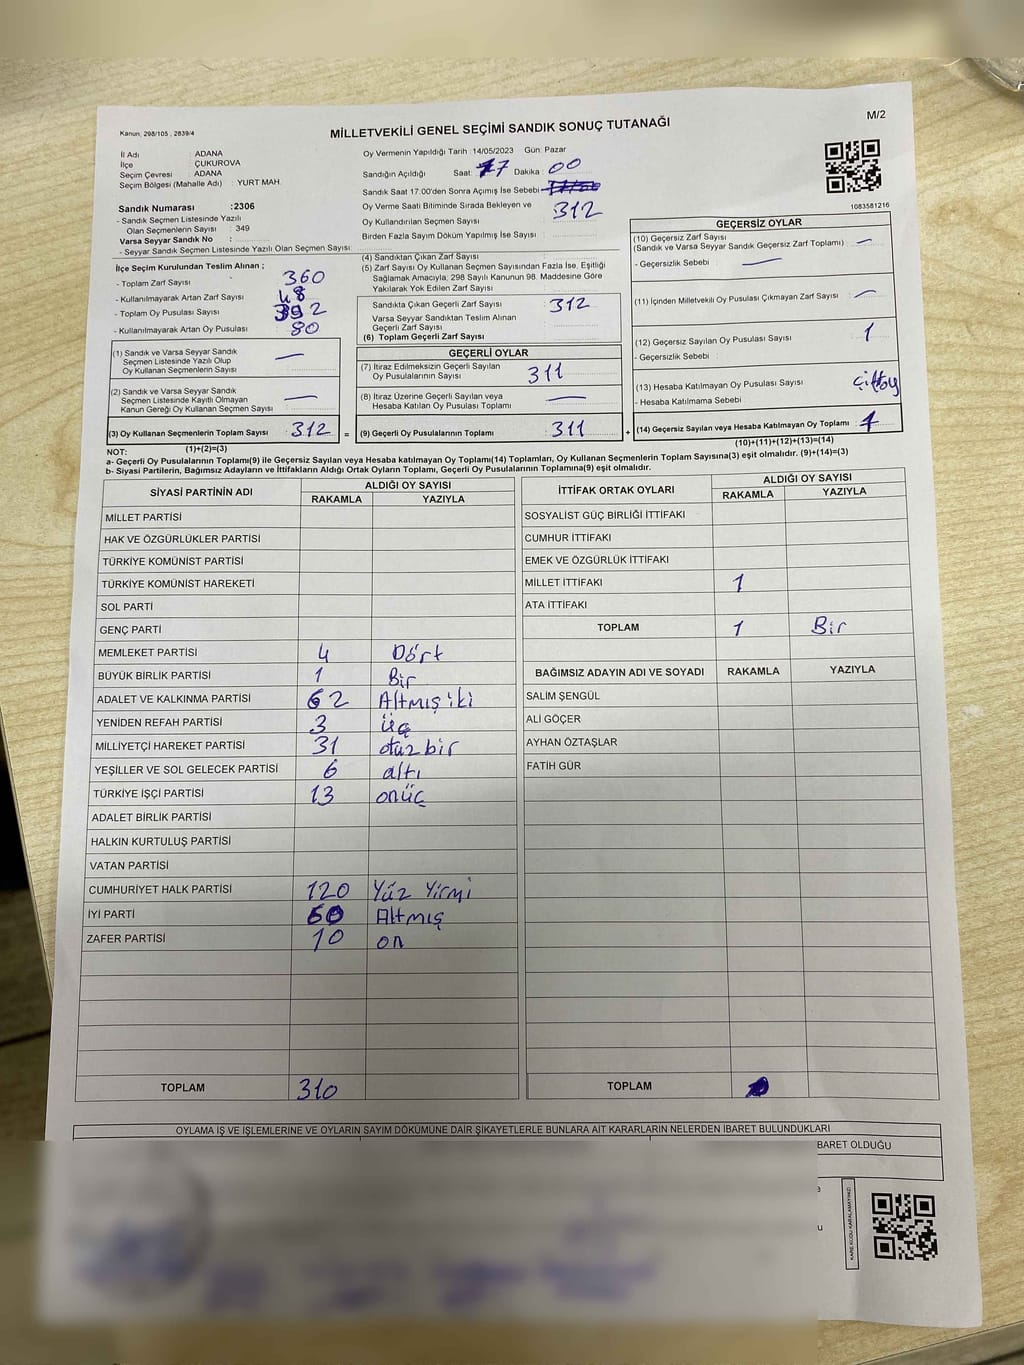 M/2
Kanun; 298/105 , 2839/4
MİLLETVEKİLİ GENEL SEÇİMİ SANDIK SONUÇ TUTANAĞI
İl Adı : ADANA
İlçe : ÇUKUROVA
Seçim Çevresi : ADANA
Seçim Bölgesi (Mahalle Adı) : YURT MAH
Sandık Numarası :2306
- Sandık Seçmen Listesinde Yazılı
Olan Seçmenlerin Sayısı : 349
Varsa Seyyar Sandık No :
- Seyyar Sandık Seçmen Listesinde Yazılı Olan Seçmen Sayısı
Oy Vermenin Yapıldığı Tarih :14/05/2023 Gün: Pazar
Sandığın Açıldığı Saat: 17 Dakika : 00
Sandık Saat 17:00'den Sonra Açımış İse Sebebi
Oy Verme Saati Bitiminde Sırada Bekleyen ve
Oy Kullandırılan Seçmen Sayısı : 312
Birden Fazla Sayım Döküm Yapılmış İse Sayısı :
1083581216
İlçe Seçim Kurulundan Teslim Alınan ;
- Toplam Zarf Sayısı : 360
- Kullanılmayarak Artan Zarf Sayısı : 48
- Toplam Oy Pusulası Sayısı : 392
- Kullanılmayarak Artan Oy Pusulası : 80
(1) Sandık ve Varsa Seyyar Sandık
Seçmen Listesinde Yazılı Olup
Oy Kullanan Seçmenlerin Sayısı : —
(2) Sandık ve Varsa Seyyar Sandık
Seçmen Listesinde Kayıtlı Olmayan
Kanun Gereği Oy Kullanan Seçmen Sayısı : —
(3) Oy Kullanan Seçmenlerin Toplam Sayısı : 312 =
(4) Sandıktan Çıkan Zarf Sayısı :
(5) Zarf Sayısı Oy Kullanan Seçmen Sayısından Fazla İse, Eşitliği
Sağlamak Amacıyla, 298 Sayılı Kanunun 98. Maddesine Göre
Yakılarak Yok Edilen Zarf Sayısı :
Sandıkta Çıkan Geçerli Zarf Sayısı : 312
Varsa Seyyar Sandıktan Teslim Alınan
Geçerli Zarf Sayısı :
(6) Toplam Geçerli Zarf Sayısı :
GEÇERLİ OYLAR
(7) İtiraz Edilmeksizin Geçerli Sayılan
Oy Pusulalarının Sayısı : 311
(8) İtiraz Üzerine Geçerli Sayılan veya
Hesaba Katılan Oy Pusulası Toplamı : —
(9) Geçerli Oy Pusulalarının Toplamı : 311 +
GEÇERSİZ OYLAR
(10) Geçersiz Zarf Sayısı
(Sandık ve Varsa Seyyar Sandık Geçersiz Zarf Toplamı) : —
- Geçersizlik Sebebi : —
(11) İçinden Milletvekili Oy Pusulası Çıkmayan Zarf Sayısı : —
(12) Geçersiz Sayılan Oy Pusulası Sayısı : 1
- Geçersizlik Sebebi :
(13) Hesaba Katılmayan Oy Pusulası Sayısı : çiftoy
- Hesaba Katılmama Sebebi
(14) Geçersiz Sayılan veya Hesaba Katılmayan Oy Toplamı : 1
NOT: (1)+(2)=(3)
(10)+(11)+(12)+(13)=(14)
a- Geçerli Oy Pusulalarının Toplamı(9) ile Geçersiz Sayılan veya Hesaba katılmayan Oy Toplamı(14) Toplamları, Oy Kullanan Seçmenlerin Toplam Sayısına(3) eşit olmalıdır. (9)+(14)=(3)
b- Siyasi Partilerin, Bağımsız Adayların ve İttifakların Aldığı Ortak Oyların Toplamı, Geçerli Oy Pusulalarının Toplamına(9) eşit olmalıdır.
SİYASİ PARTİNİN ADI ALDIĞI OY SAYISI
RAKAMLA YAZIYLA
MİLLET PARTİSİ
HAK VE ÖZGÜRLÜKLER PARTİSİ
TÜRKİYE KOMÜNİST PARTİSİ
TÜRKİYE KOMÜNİST HAREKETİ
SOL PARTİ
GENÇ PARTİ
MEMLEKET PARTİSİ 4 Dört
BÜYÜK BİRLİK PARTİSİ 1 Bir
ADALET VE KALKINMA PARTİSİ 62 Altmış iki
YENİDEN REFAH PARTİSİ 3 üç
MİLLİYETÇİ HAREKET PARTİSİ 31 otuz bir
YEŞİLLER VE SOL GELECEK PARTİSİ 6 altı
TÜRKİYE İŞÇİ PARTİSİ 13 onüç
ADALET BİRLİK PARTİSİ
HALKIN KURTULUŞ PARTİSİ
VATAN PARTİSİ
CUMHURİYET HALK PARTİSİ 120 Yüz Yirmi
İYİ PARTİ 60 Altmış
ZAFER PARTİSİ 10 on
TOPLAM 310
İTTİFAK ORTAK OYLARI ALDIĞI OY SAYISI
RAKAMLA YAZIYLA
SOSYALİST GÜÇ BİRLİĞİ İTTİFAKI
CUMHUR İTTİFAKI
EMEK VE ÖZGÜRLÜK İTTİFAKI
MİLLET İTTİFAKI 1
ATA İTTİFAKI
TOPLAM 1 Bir
BAĞIMSIZ ADAYIN ADI VE SOYADI RAKAMLA YAZIYLA
SALİM ŞENGÜL
ALİ GÖÇER
AYHAN ÖZTAŞLAR
FATİH GÜR
TOPLAM
OYLAMA İŞ VE İŞLEMLERİNE VE OYLARIN SAYIM DÖKÜMÜNE DAİR ŞİKAYETLERLE BUNLARA AİT KARARLARIN NELERDEN İBARET BULUNDUKLARI
BARET OLDUĞU
KARE KODU KARALAMAYINIZ!